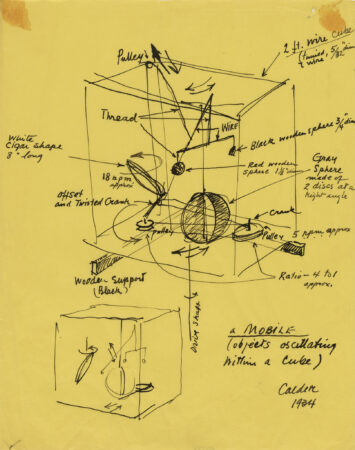 Pulley
2 ft. wire cube
(tinned, 5/32"
wire)
Thread
WIRE
Black wooden sphere 3/4" diam
White
Cigar shape
8" long
Red wooden
sphere 1
Gray
Sphere
made of
2 discs at a
right angle
18 rpm
approx
offset
and Twisted Crank
Crank
pulley
Pulley
5 rpm approx
Wooden Support
(Black)
Ratio - 4 to 1
approx.
Drive Shaft
a MOBILE
(objects oscillating
within a Cube)
Calder
1934